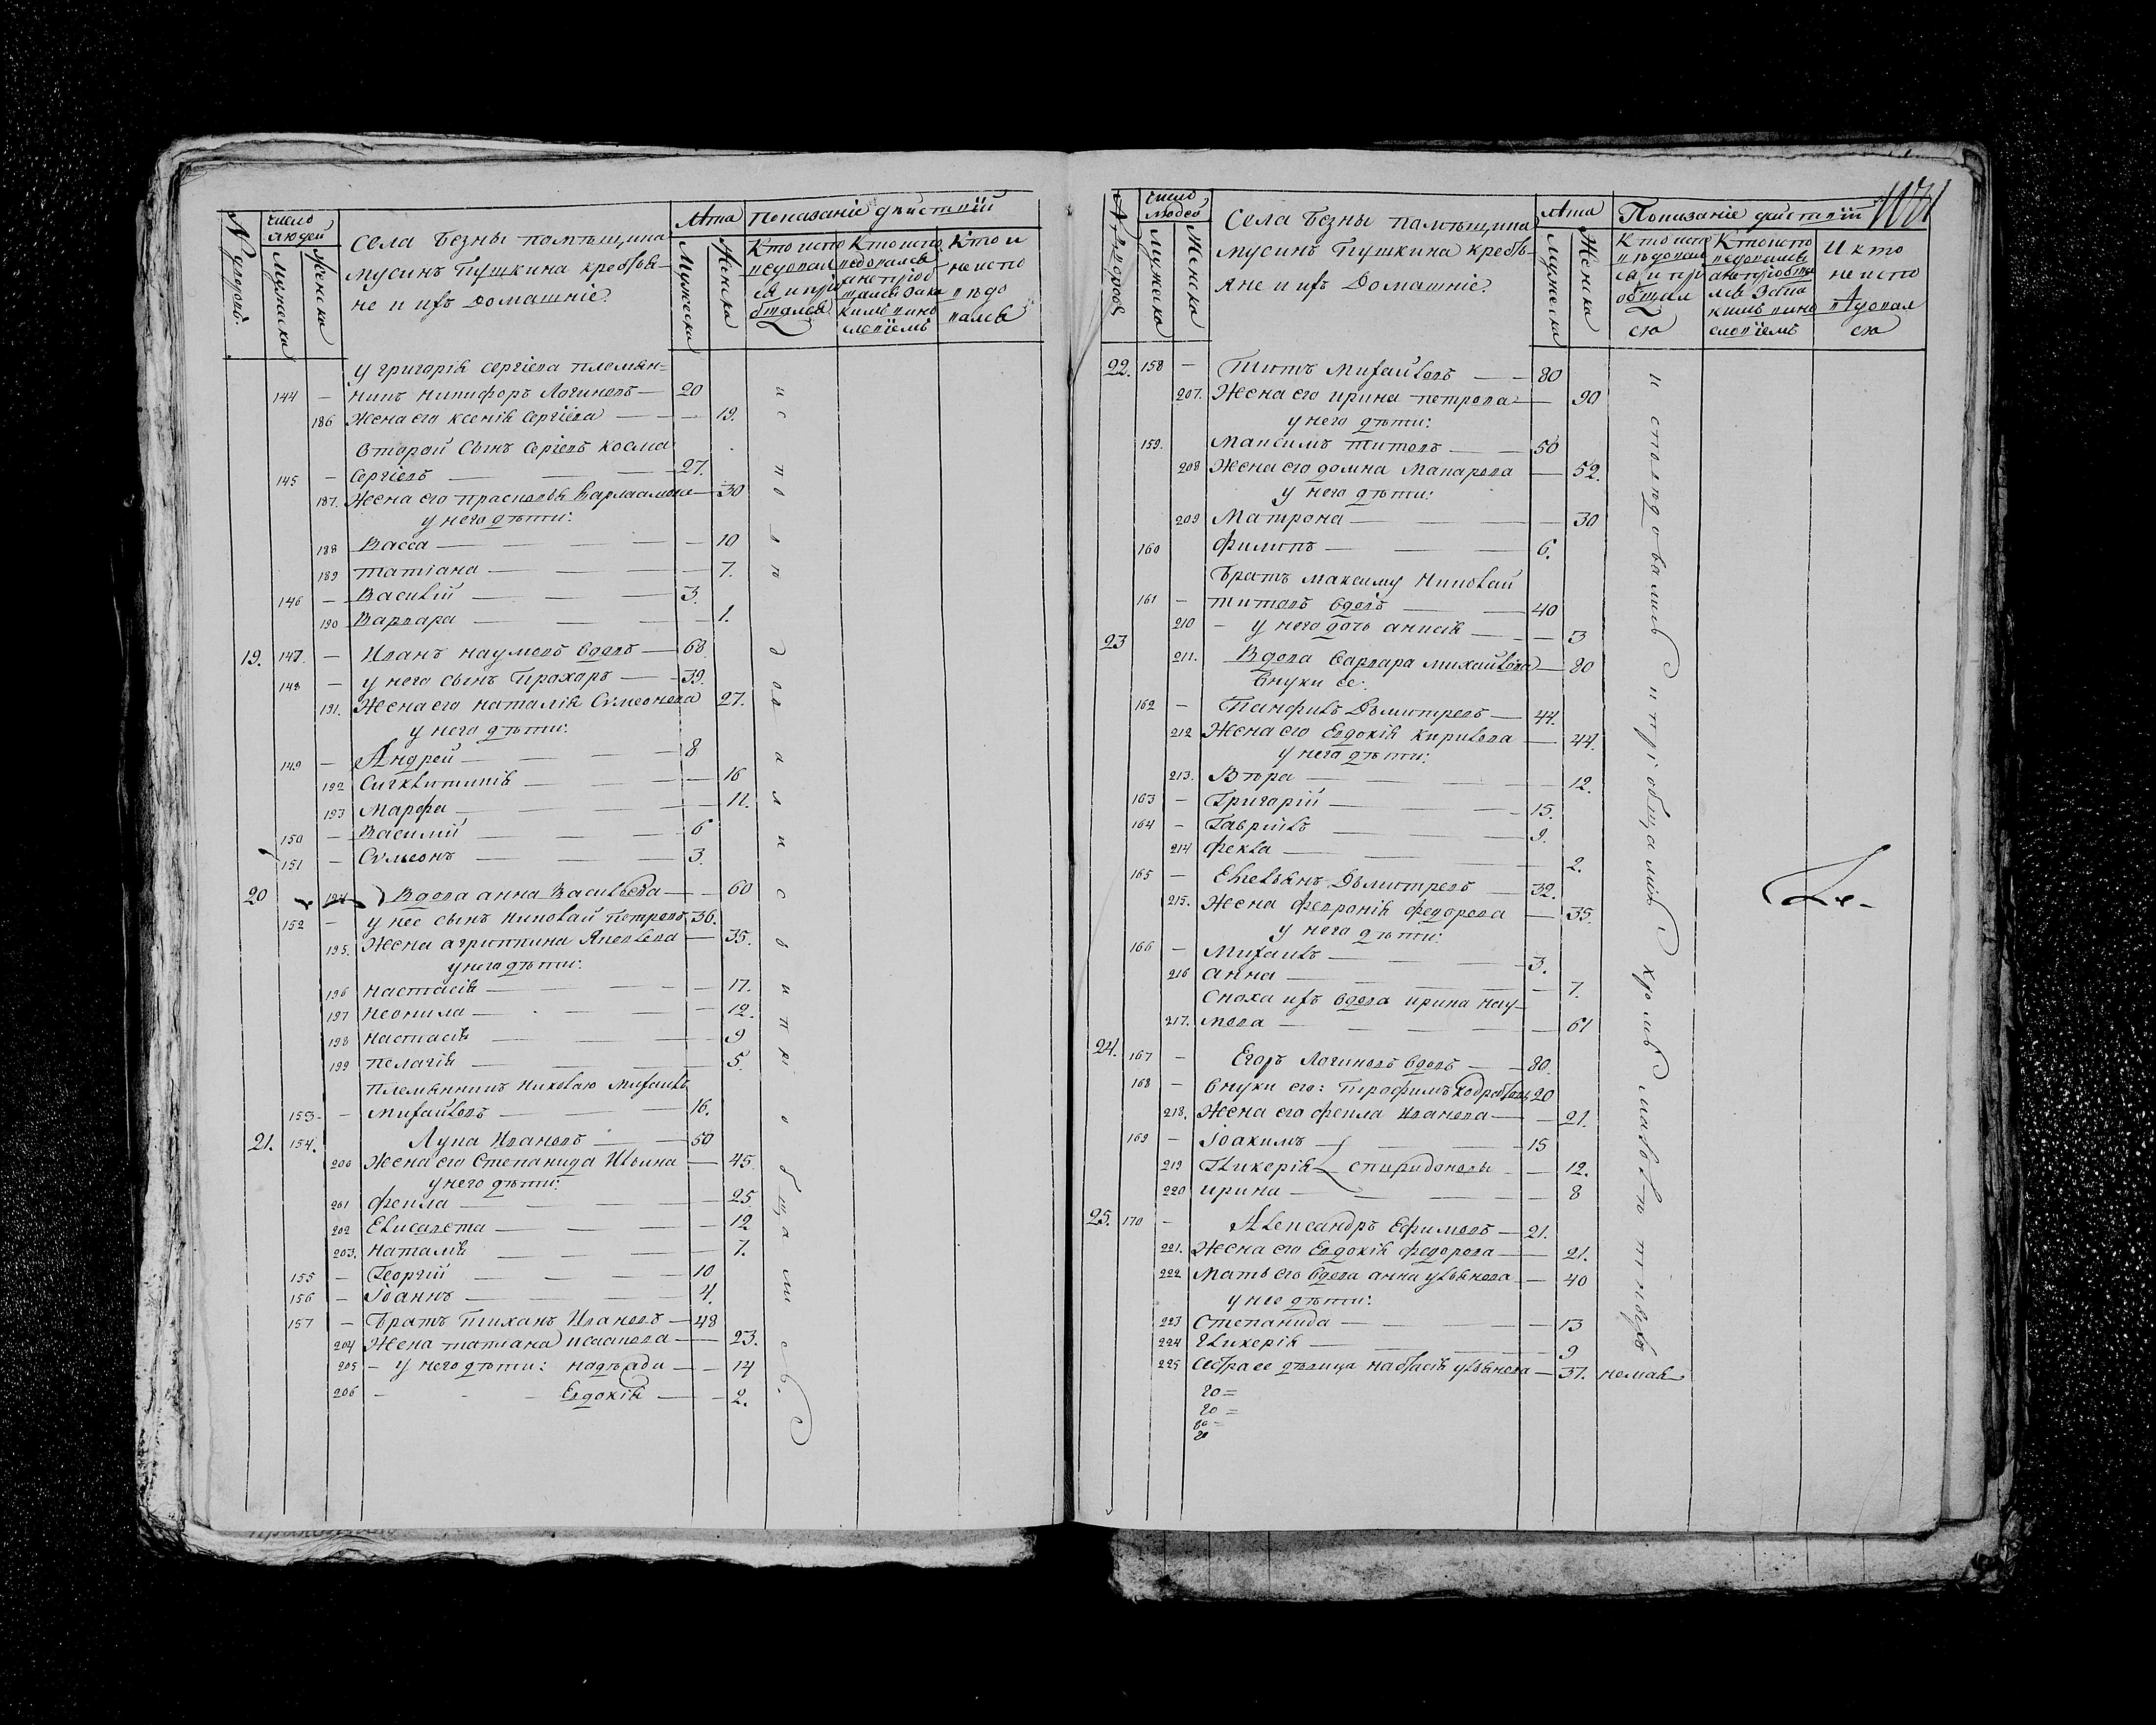 N дворовъ.
число людей
Мужеска
Женска
Села Безны помѣщика
Мусинъ Пушкина крестья-
не и ихъ Домашніе.
Лѣта
Мужеска
Женска
Показаніе дѣйствій
Кто испо
вѣдовал
ся и прі
общался
Кто испо
вѣдовался
а не пріоб
щался зака
кимъ вино
словіемъ
Кто и
не испо
вѣдо
вался
у Григорія Сергіева племян-
144 — никъ Никифоръ Логиновъ — 20
186 Жена его Ксенія Сергіева — — 19.
Второй сынъ Сергіевъ Косма
145 — Сергіевъ — — 27.
187. Жена его Прасковья Варлаамова — 30
у него дѣти:
188 Васса — — — 10
189 Татіана — — — 7.
146 — Василій — — 3.
190 Варвара — — — 1.
19. 147. — Иванъ Наумовъ вдовъ — 68
148 — у него сынъ Прохоръ — 39.
191. Жена его Наталія Сѵмеонова 27.
у него дѣти:
149 — Андрей — — 8
192 Сигклитикія — — 16
193 Марфа — — 11.
150 — Василій — — 6
151 — Сѵмеонъ — — 3.
20 194 Вдова Анна Васильева — — 60
152 — у нее сынъ Николай Петровъ 36.
195. Жена Агриппина Яковлева — 35.
у него дѣти:
196 Настасія — — 17.
197 Неонила — — 12.
198 Настасія — — 9
199 Пелагія — — 5.
Племянникъ Николаю Михаилъ
153 — Михайловъ — — 16.
21. 154. Лука Ивановъ — — 50
200 Жена его Степанида Ильина — 45.
у него дѣти:
201 Фекла — — — 25
202 Елисавета — — — 12
203. Наталія — — — 7.
155 — Георгій — — 10
156 — Іоаннъ — — 4.
157 — Братъ Тиханъ Ивановъ — 48
204 Жена Татіана Исаакова — — 23.
205 — у него дѣти: Надежди — — 14
206 — - - Евдокія — — 2.
исповѣдовались и пріобщались.
N дворовъ
число людей
Мужеска
Женска
Села Безны помѣщика
Мусинъ Пушкина кресть-
яне и ихъ Домашніе.
Лѣта
Мужеска
Женска
Показаніе дѣйствій
Кто испо
вѣдовал
ся и прі
общал
ся
Кто испо
вѣдовался
а не пріобща
лся зака
кимъ вино
словіемъ
И кто
не испо
вѣдовал
ся
22. 158 — Титъ Михайловъ — — 80
207. Жена его Ирина Петрова — 90
у него дѣти:
159. Максимъ Титовъ — — 50
208 Жена его Домна Макарова — 52.
у него дѣти:
209 Матрона — — — 30
160 Филипъ — — 6.
Братъ Максиму Николай
161 — Титовъ вдовъ — — 40
210 — у него дочь Анисія — — 3
23 211. Вдова Варвара Михайлова — 80
Внуки ее:
162 — Панфилъ Дьмитревъ — 44.
212 Жена его Евдокія Кирилова — 44.
у него дѣти:
213. Вѣра — — — 12.
163 — Григорій — — 15.
164 — Гаврійлъ — — 9.
214 Фекла — — — 2.
165 — Емельянъ Дьмитревъ — 32.
215. Жена Февронія Федорова — 35.
у него дѣти:
166 — Михаилъ — — 3.
216 Анна — — — 7.
Сноха ихъ вдова Ирина Нау-
217. мова — — — 61
24. 167 — Егоръ Логиновъ вдовъ — — 80.
168 — Внуки его: Трофимъ Кодратовъ 20
218. Жена его Фекла Иванова — — 21.
169 — Іоакимъ — — 15
219 Гликерія — Спиридоновы — 12.
220 Ирина — — — 8
25. 170 — Александръ Ефимовъ — 21.
221. Жена его Евдокія Федорова — 21.
222 Мать его вдова Анна Ульянова — 40
у нее дѣти:
223 Степанида — — — 13
224 Гликерія — — 9
225 Сестра ее дѣвица Настасія Ульянова — 37. немая
20 =
20 =
20 =
20
исповѣдовались и пріобщались кромѣ